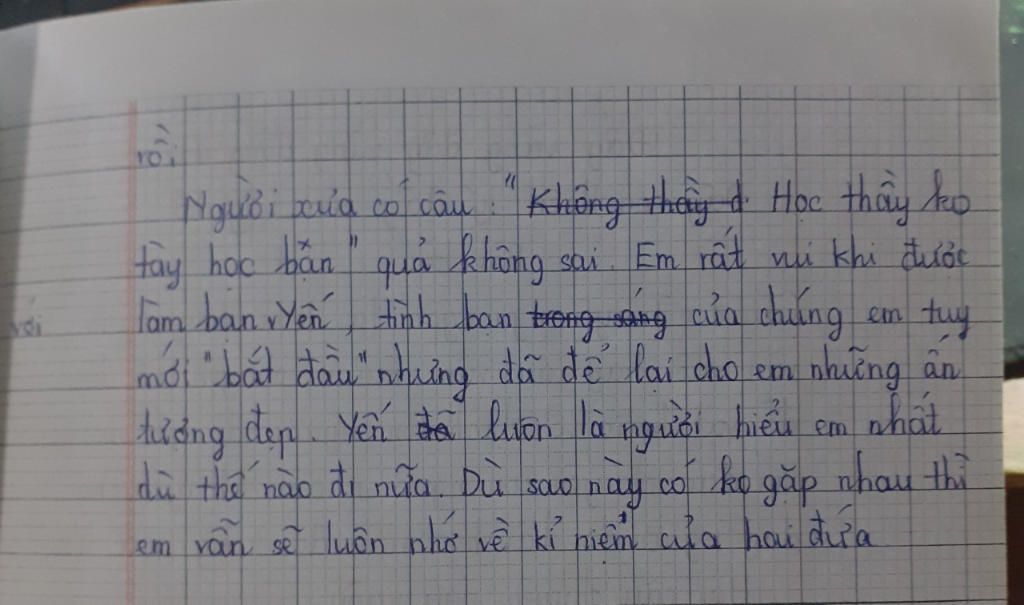 rồi.
Người xưa có câu : " Không thầy đ. Học thầy ko
tày học bạn " quả không sai. Em rất vui khi được
với làm bạn v Yến, tình bạn trong sáng của chúng em tuy
mới "bắt đầu" nhưng đã để lại cho em những ấn
tượng đẹp. Yến đã luôn là người hiểu em nhất
dù thế nào đi nữa. Dù sao này có ko gặp nhau thì
em vẫn sẽ luôn nhớ về kỉ niểm của hai đứa